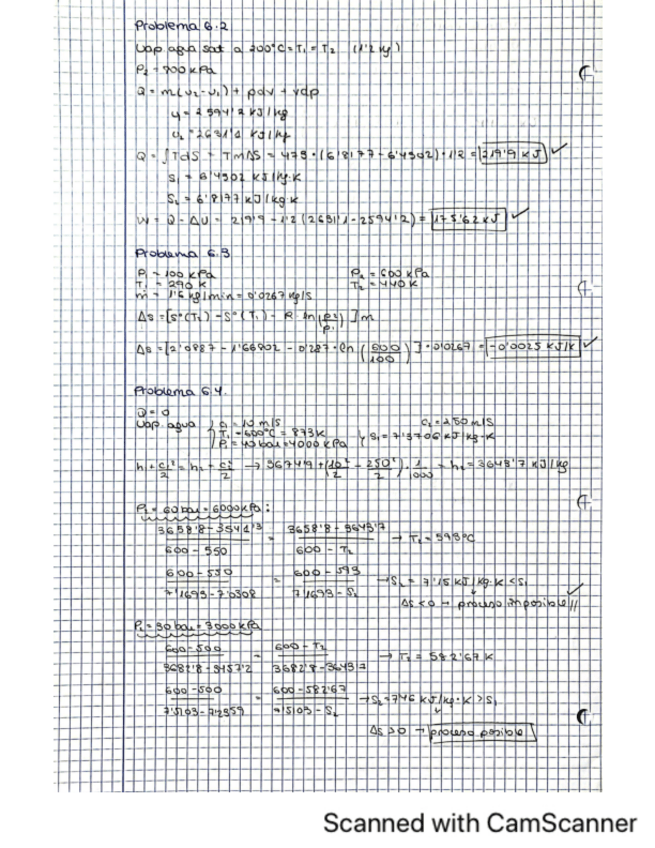 Problema 6.2
Vap. agua sat a 200°C = T₁ = T₂ (1'2 kg)
P₂ = 700 kPa
Q = m(u₂-u₁) + pdv + vdp
u₁ = 2594'2 kJ/kg
u₂ = 2631'1 kJ/kg
Q = ∫TdS = TmΔS = 473 · (6'8177 - 6'4302) · 1'2 = 219'9 kJ ✓
S₁ = 6'4302 kJ/kg·K
S₂ = 6'8177 kJ/kg·K
W = Q - ΔU = 219'9 - 1'2 (2631'1 - 2594'2) = 175'62 kJ ✓
Problema 6.3
P₁ = 100 kPa P₂ = 600 kPa
T₁ = 290 K T₂ = 440 K
ṁ = 1'6 kg/min = 0'0267 kg/s
Δs = [s°(T₂) - s°(T₁) - R · ln(p₂/p₁)] m
Δs = [2'0887 - 1'66802 - 0'287 · ln (600/100)] · 0'0267 = -0'0025 kJ/K ✓
Problema 6.4.
Q = 0
Vap. agua { c₁ = 10 m/s c₂ = 250 m/s
T₁ = 600°C = 873 K } s₁ = 7'3706 kJ/kg·K
P₁ = 40 bar = 4000 kPa
h₁ + c₁²/2 = h₂ + c₂²/2 → 3674'9 + (10²/2 - 250²/2) · 1/1000 = h₂ = 3643'7 kJ/kg
P₂ = 60 bar = 6000 kPa:
3658'8 - 3541'3 / 600 - 550 = 3658'8 - 3643'7 / 600 - T₂ → T₂ = 593°C
600 - 550 / 7'1693 - 7'0308 = 600 - 593 / 7'1693 - S₂ → S₂ = 7'15 kJ/kg·K < S₁ ✓
Δs < 0 → proceso imposible //
P₂ = 30 bar = 3000 kPa
600 - 500 / 3682'8 - 3457'2 = 600 - T₂ / 3682'8 - 3643'7 → T₂ = 582'67 K
600 - 500 / 7'5103 - 7'2359 = 600 - 582'67 / 7'5103 - S₂ → S₂ = 7'46 kJ/kg·K > S₁
Δs > 0 → proceso posible
Scanned with CamScanner